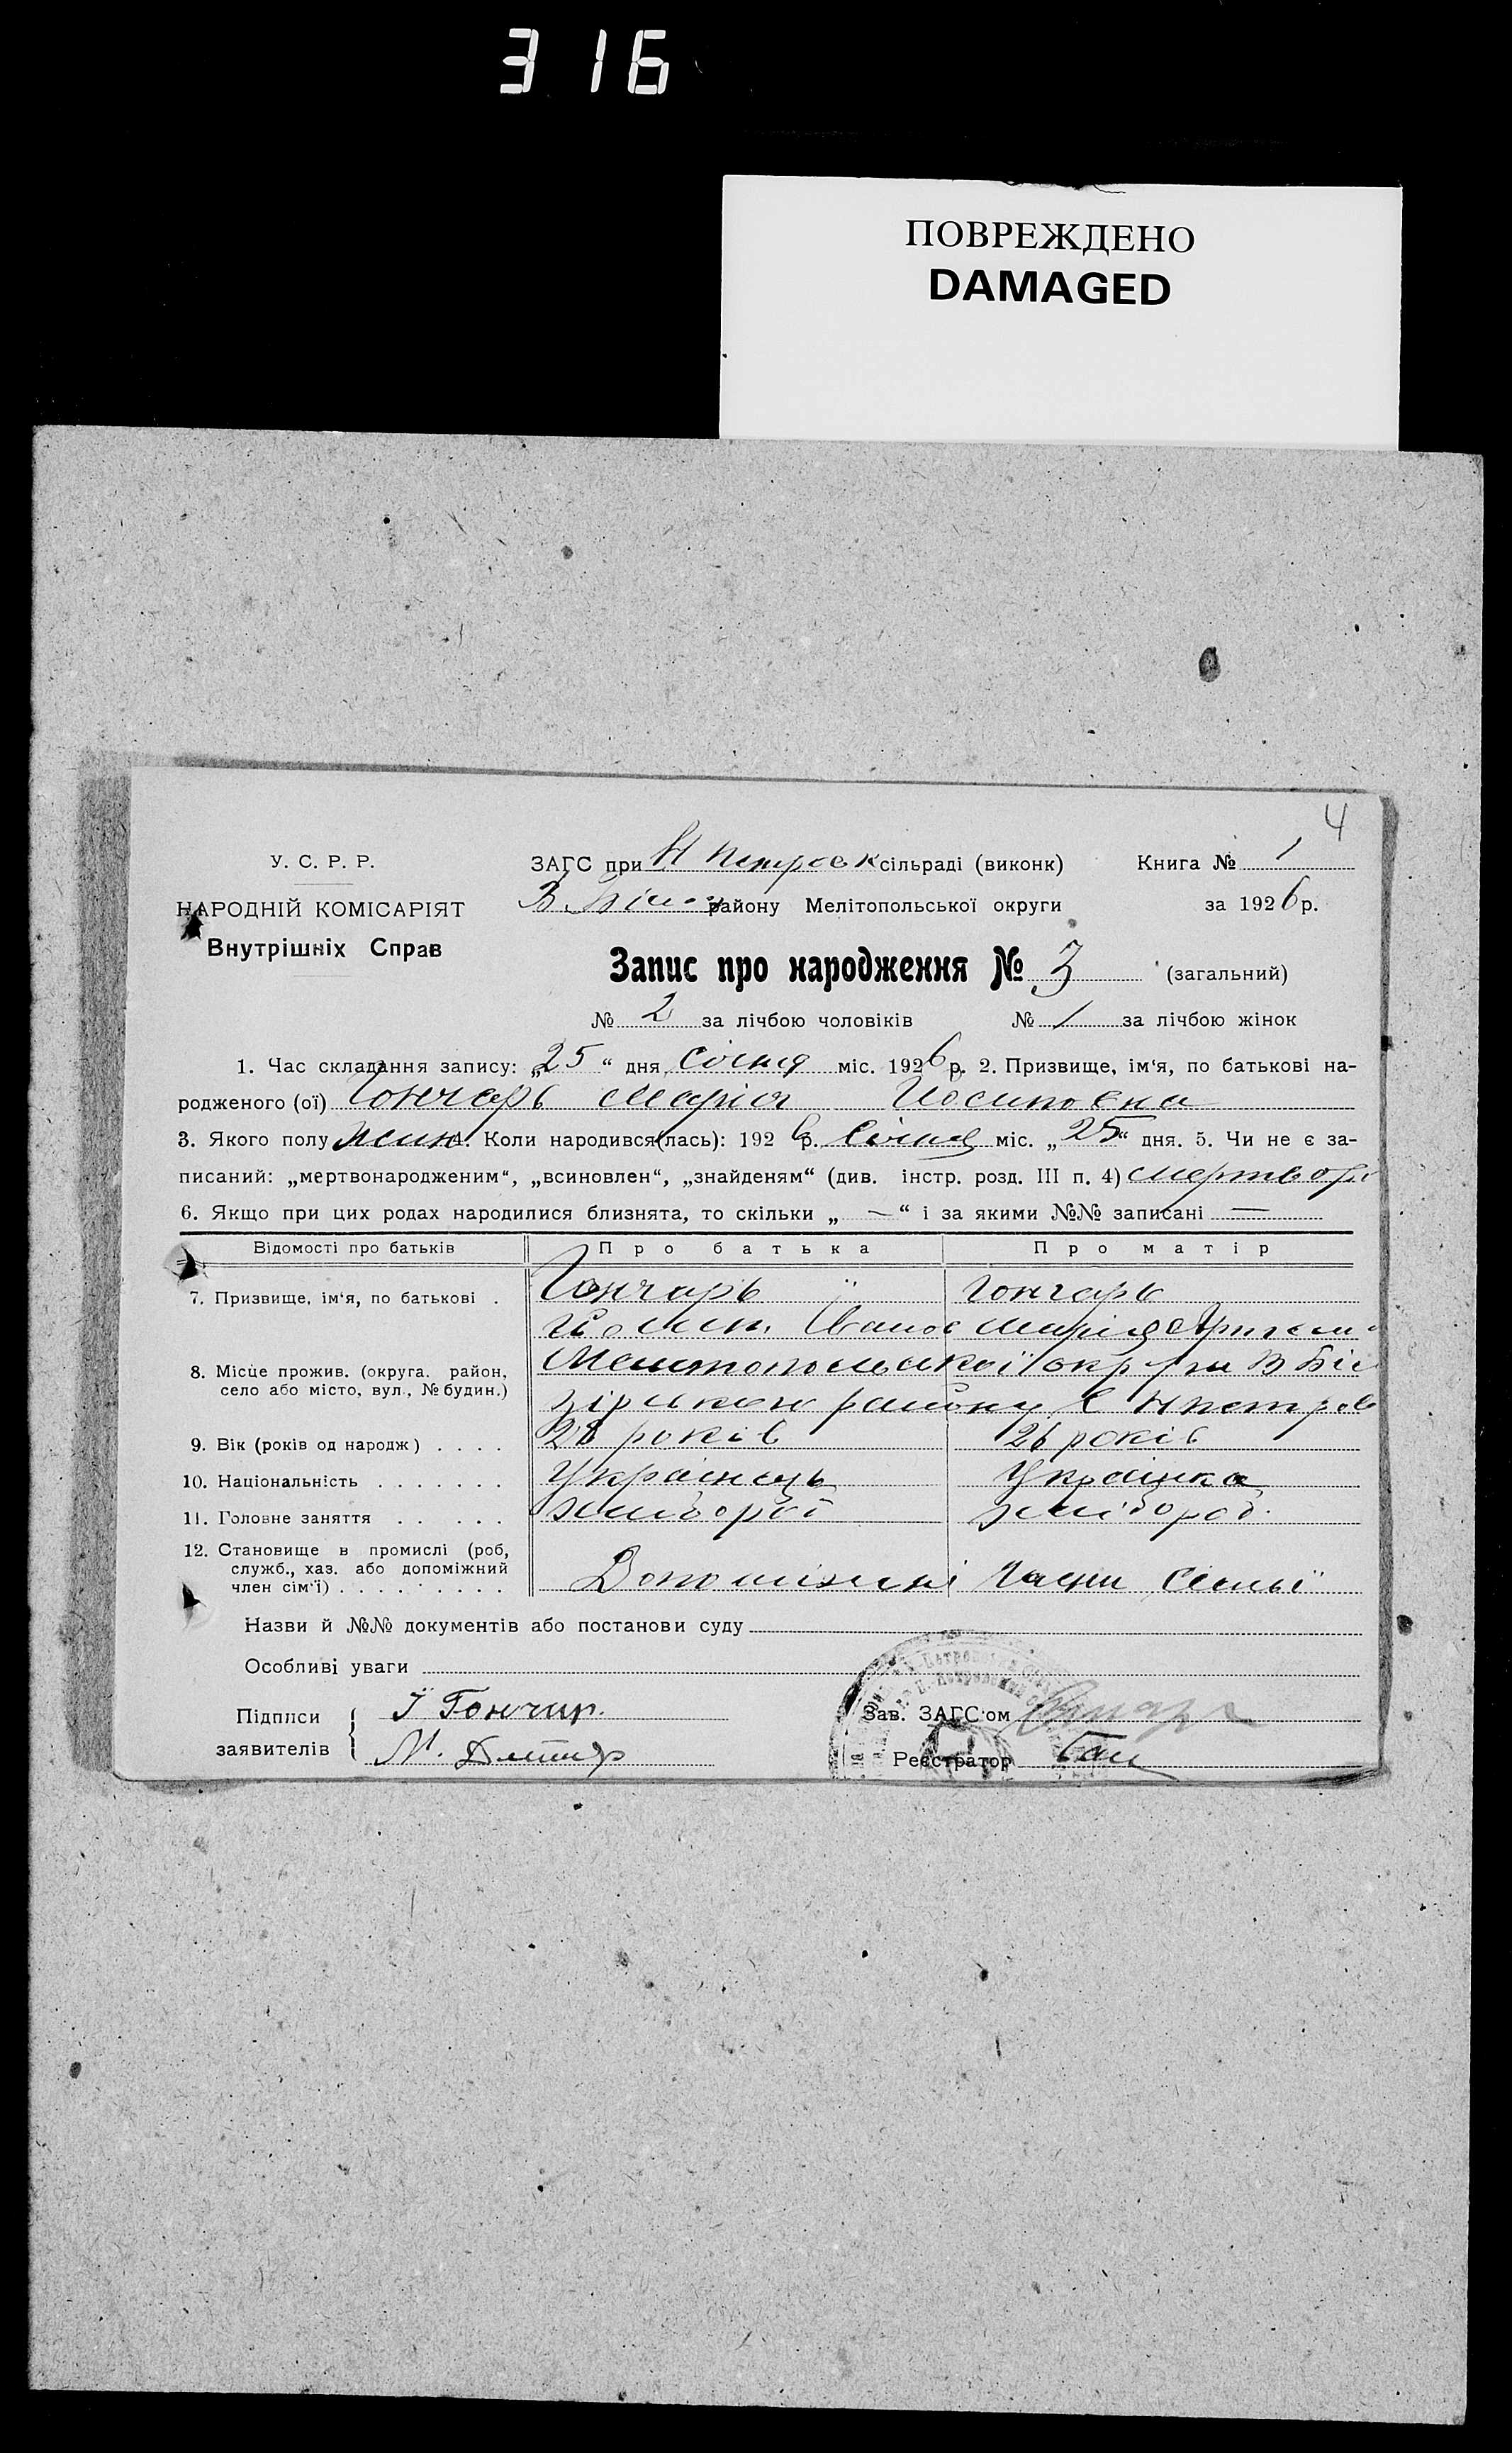 316
ПОВРЕЖДЕНО
DAMAGED
4
У. С. Р. Р.
ЗАГС при Н Петровк сільраді (виконк) Книга № 1
НАРОДНІЙ КОМІСАРІЯТ
району Мелітопольської округи за 1926 р.
Внутрішніх Справ
Запис про народження № 3 (загальний)
№ 2 за лічбою чоловіків № 1 за лічбою жінок
1. Час складання запису: „25“ дня Січня міс. 1926 р. 2. Призвище, ім‘я, по батькові на-
родженого (ої) Гончарь Марія Йосиповна
3. Якого полу жин 4. Коли народився(лась): 1926 р. Січня міс. „25“ дня. 5. Чи не є за-
писаний: „мертвонародженим“, „всиновлен“, „знайденям“ (див. інстр. розд. III п. 4)
6. Якщо при цих родах народилися близнята, то скільки „ — “ і за якими №№ записані —
Відомості про батьків Про батька Про матір
7. Призвище, ім‘я, по батькові . Гончарь Гончарь
Іванов Марія
8. Місце прожив. (округа. район, Мелитопольської округи В Біло
село або місто, вул., № будин.) зірського району С Нпетров
9. Вік (років од народж) . . . . 28 років 26 років
10. Національність . . . . . . . Українець Українка
11. Головне заняття . . . . . хлібороб хлібороб.
12. Становище в промислі (роб,
служб., хаз. або допоміжний
член сім‘ї) . . . . . . . . . Допоміжні
Назви й №№ документів або постанови суду
Особливі уваги
Підписи Ї Гончар. Зав. ЗАГС‘ом
заявителів М. Реєстратор